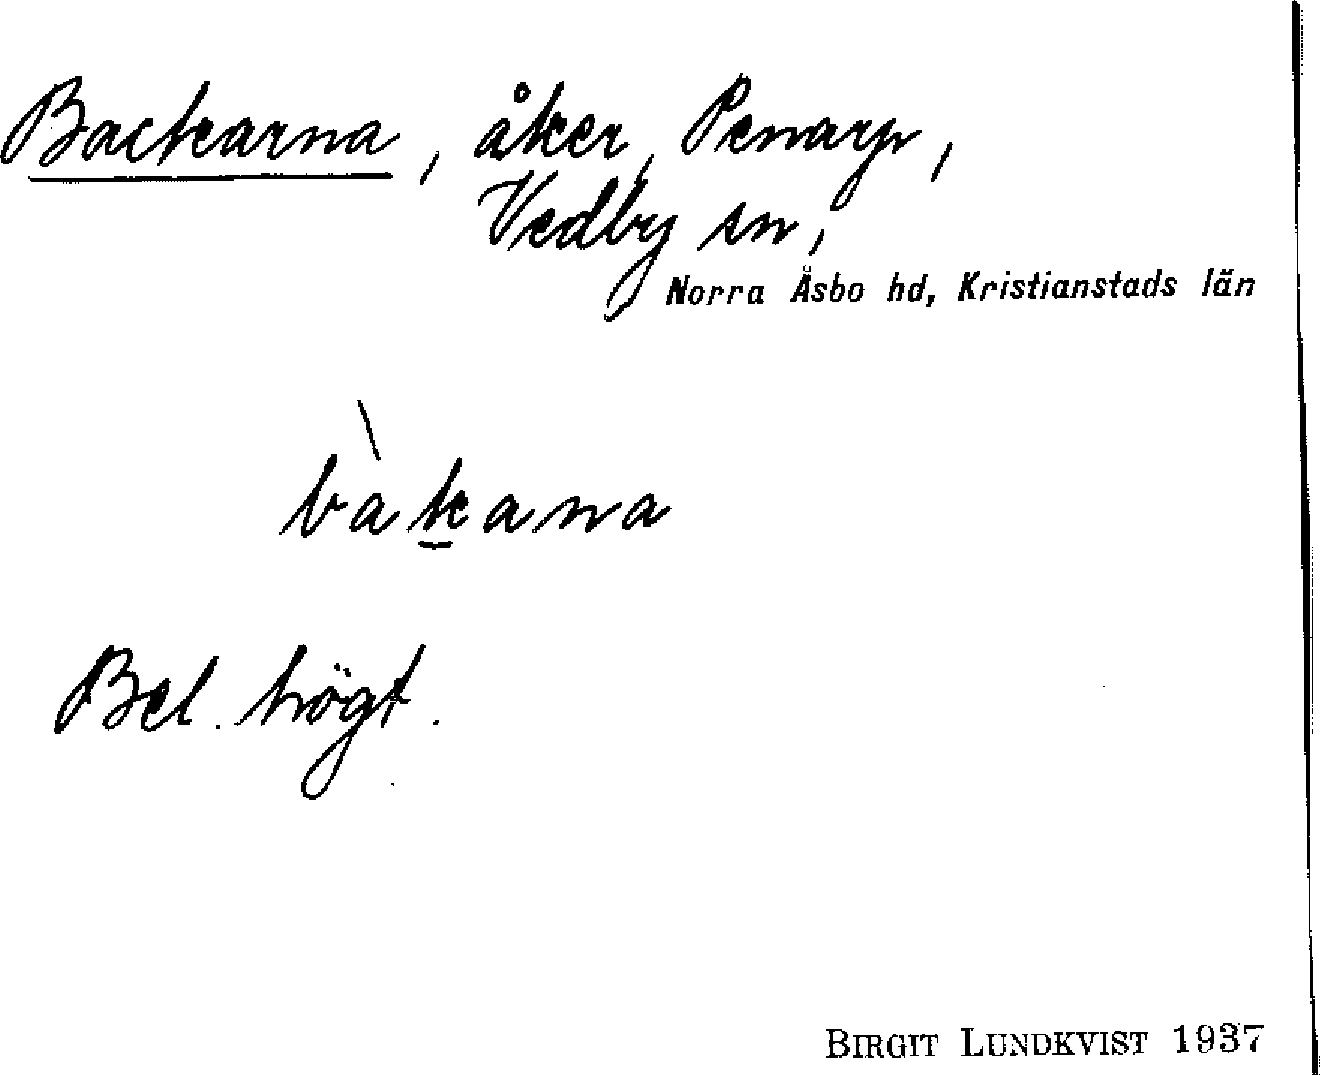 Backarna, åker, Penarp,
Vedby sn,
Norra Åsbo hd, Kristianstads län
bàk̲ana
Bel. högt.
BIRGIT LUNDKVIST 1937